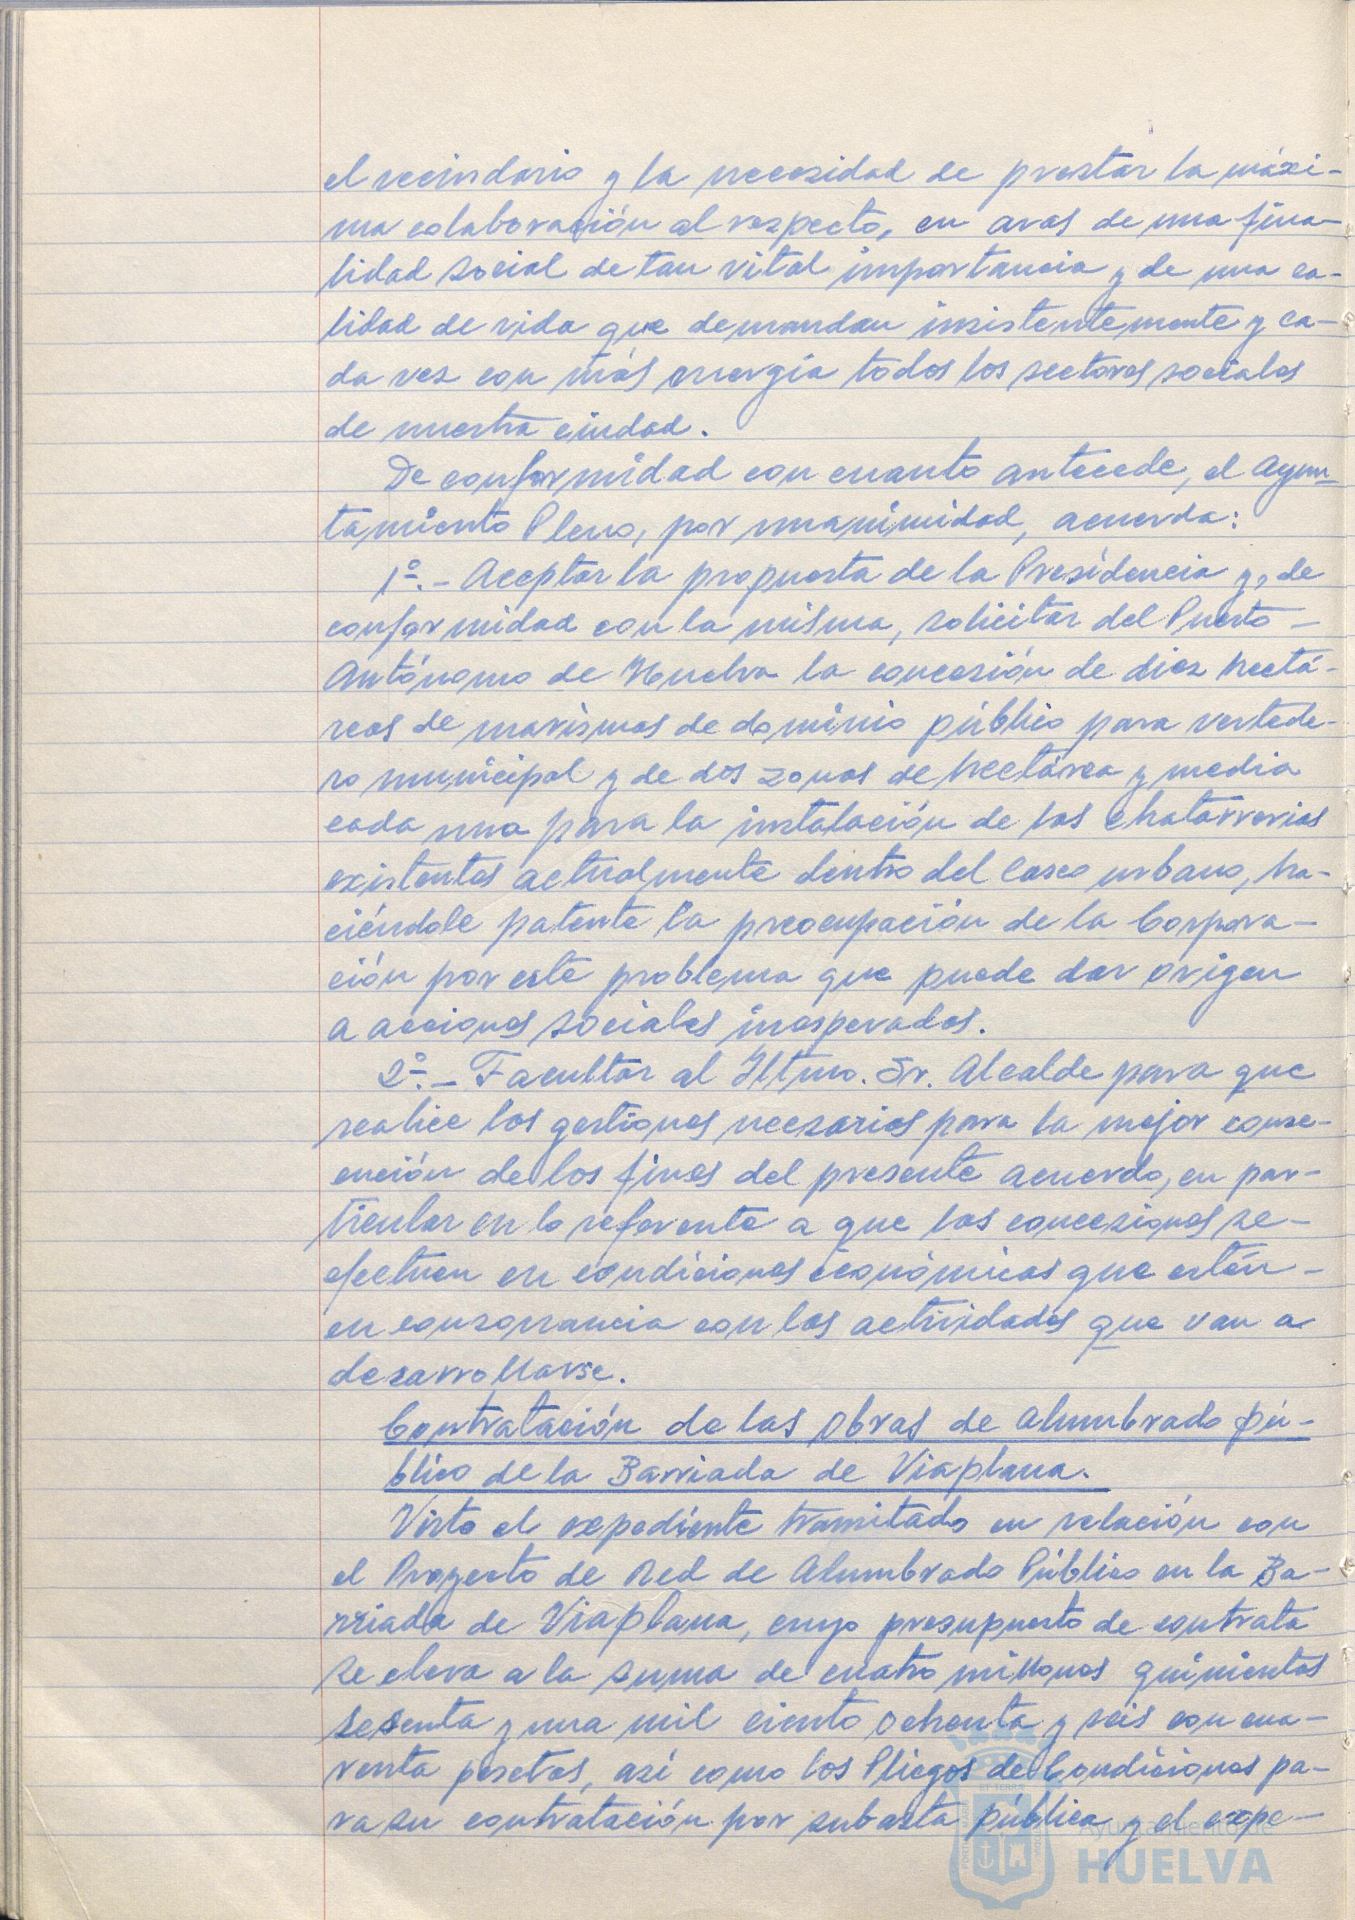 el vecindario y la necesidad de prestar la máxi-
ma colaboración al respecto, en aras de una fina-
lidad social de tan vital importancia y de una ca-
lidad de vida que demandan insistentemente y ca-
da vez con más energía todos los sectores sociales
de nuestra ciudad.
De conformidad con cuanto antecede, el Ayun-
tamiento Pleno, por unanimidad, acuerda:
1º.- Aceptar la propuesta de la Presidencia y, de
conformidad con la misma, solicitar del Puerto -
Autónomo de Huelva la concesión de diez hectá-
reas de marismas de dominio público para vertede-
ro municipal y de dos zonas de hectárea y media
cada una para la instalación de las chatarrerias
existentes actualmente dentro del casco urbano, ha-
ciéndole patente la preocupación de la Corpora-
ción por este problema que puede dar origen
a acciones sociales inesperadas.
2º.- Facultar al Iltmo. Sr. Alcalde para que
realice las gestiones necesarias para la mejor conse-
cución de los fines del presente acuerdo, en par-
ticular en lo referente a que las concesiones se -
efectuen en condiciones económicas que estén -
en consonancia con las actividades que van a
desarrollarse.
Contratación de las Obras de Alumbrado pú-
blico de la Barriada de Viaplana.
Visto el expediente tramitado en relación con
el Proyecto de Red de Alumbrado Público en la Ba-
rriada de Viaplana, cuyo presupuesto de contrata
se eleva a la suma de cuatro millones quinientas
sesenta y una mil ciento ochenta y seis con cua-
renta pesetas, así como los Pliegos de Condiciones pa-
ra su contratación por subasta pública y el expe-
Ayuntamiento de
HUELVA